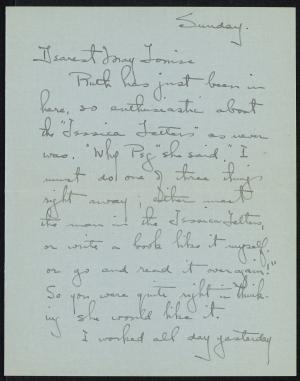 Sunday.
Dearest May Louise
Ruth has just been in
here, so enthusiastic about
the "Jessica Letters" as never
was. "Why Peg" she said "I
must do one of three things
right away; Either meet
the man in the Jessica Letters,
or write a book like it myself,
or go and read it over again!"
So you were quite right in think-
ing she would like it.
I worked all day yesterday